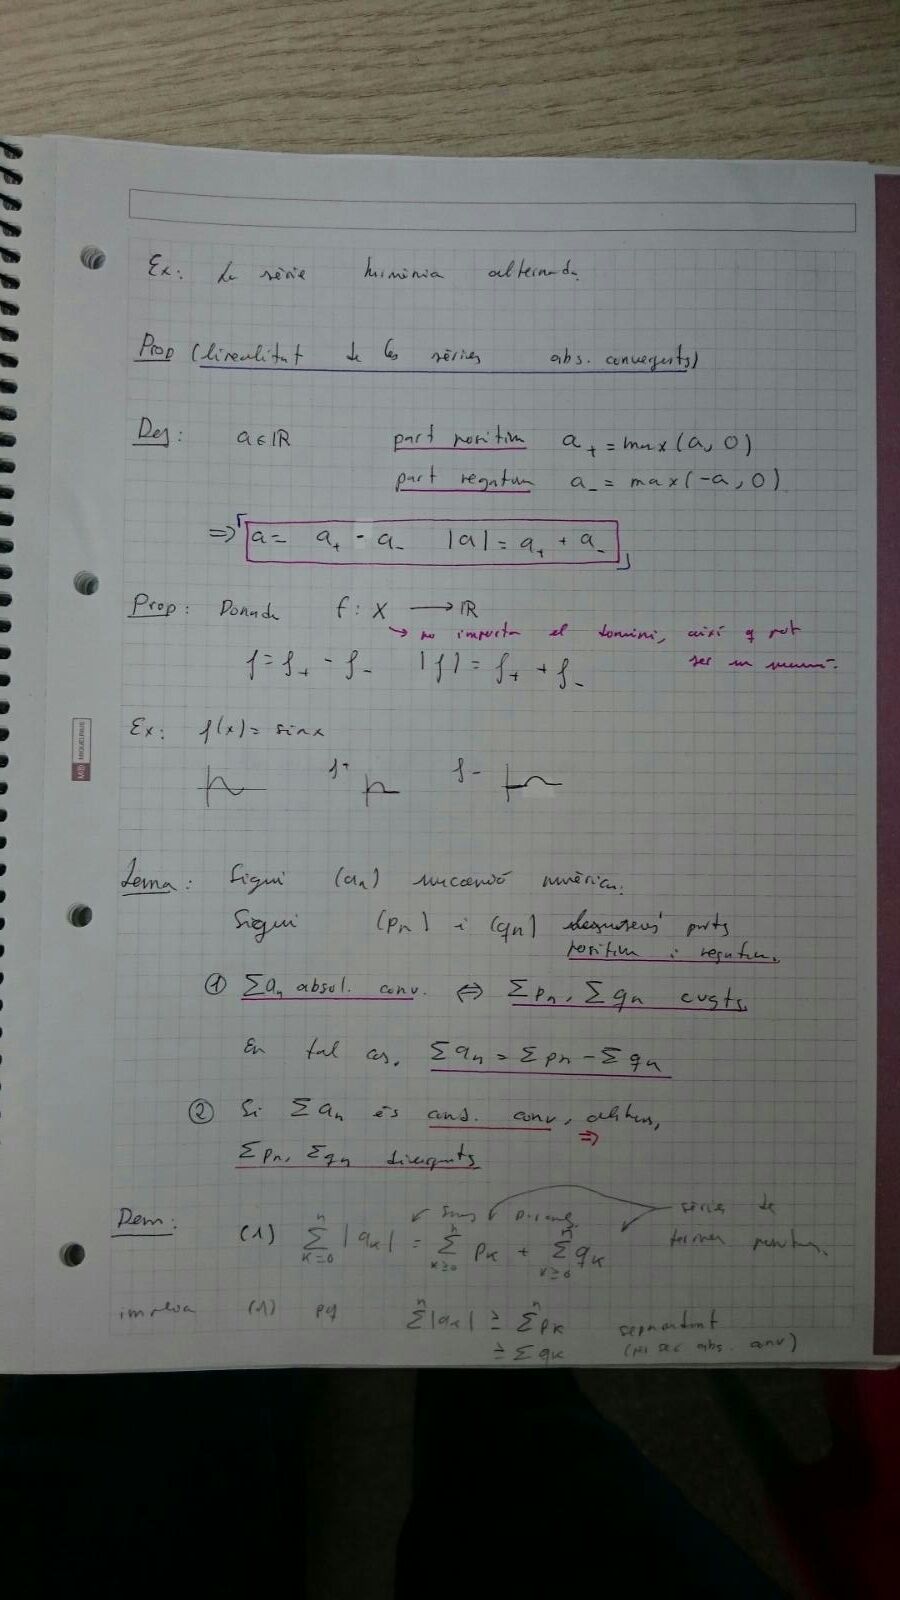 Ex: La sèrie harmònica alternada.
Prop (linealitat de les sèries abs. convergents)
Def: a ∈ ℝ part positiva a₊ = max(a, 0)
part negativa a₋ = max(-a, 0)
⇒ a = a₊ - a₋ |a| = a₊ + a₋
Prop: Donada f: X → ℝ
→ no importa el domini, així q pot
ser un
f = f₊ - f₋ |f| = f₊ + f₋
MIQUELRIUS
Ex: f(x) = sinx
f⁺ f₋
Lema: Sigui (aₙ) successió numèrica.
Sigui (pₙ) i (qₙ) parts
positiva i negativa.
① Σaₙ absol. conv. ⇔ Σpₙ, Σqₙ cvgts.
En tal cas, Σaₙ = Σpₙ - Σqₙ
② Si Σaₙ és cond. conv, aleshores,
⇒
Σpₙ, Σqₙ divergents
Dem: (1) Σⁿₖ₌₀ |aₖ| = Σⁿₖ≥₀ pₖ + Σⁿₖ≥₀ qₖ
sèries de
termes positius.
implica (1) pq Σⁿ|aₖ| ≥ Σⁿpₖ
≥ Σqₖ abs. conv)